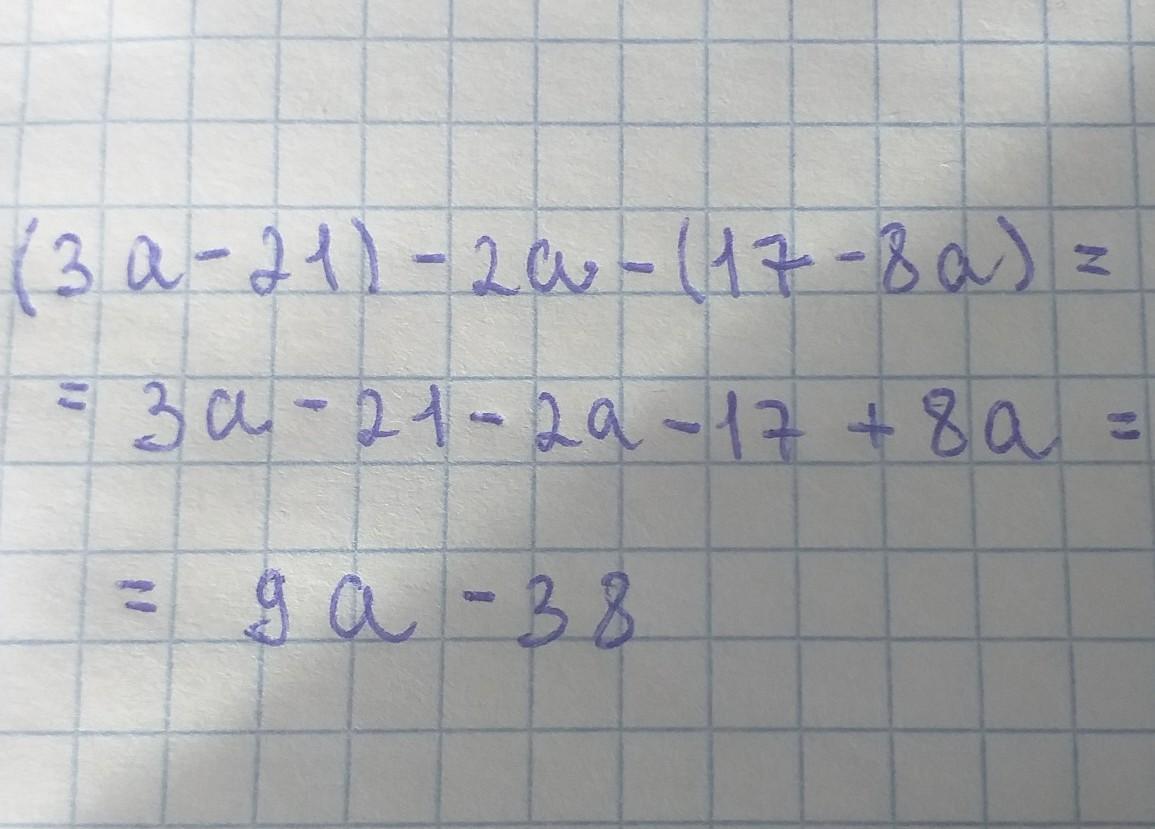 (3a-21)-2a-(17-8a)=
= 3a-21-2a-17+8a=
= 9a-38